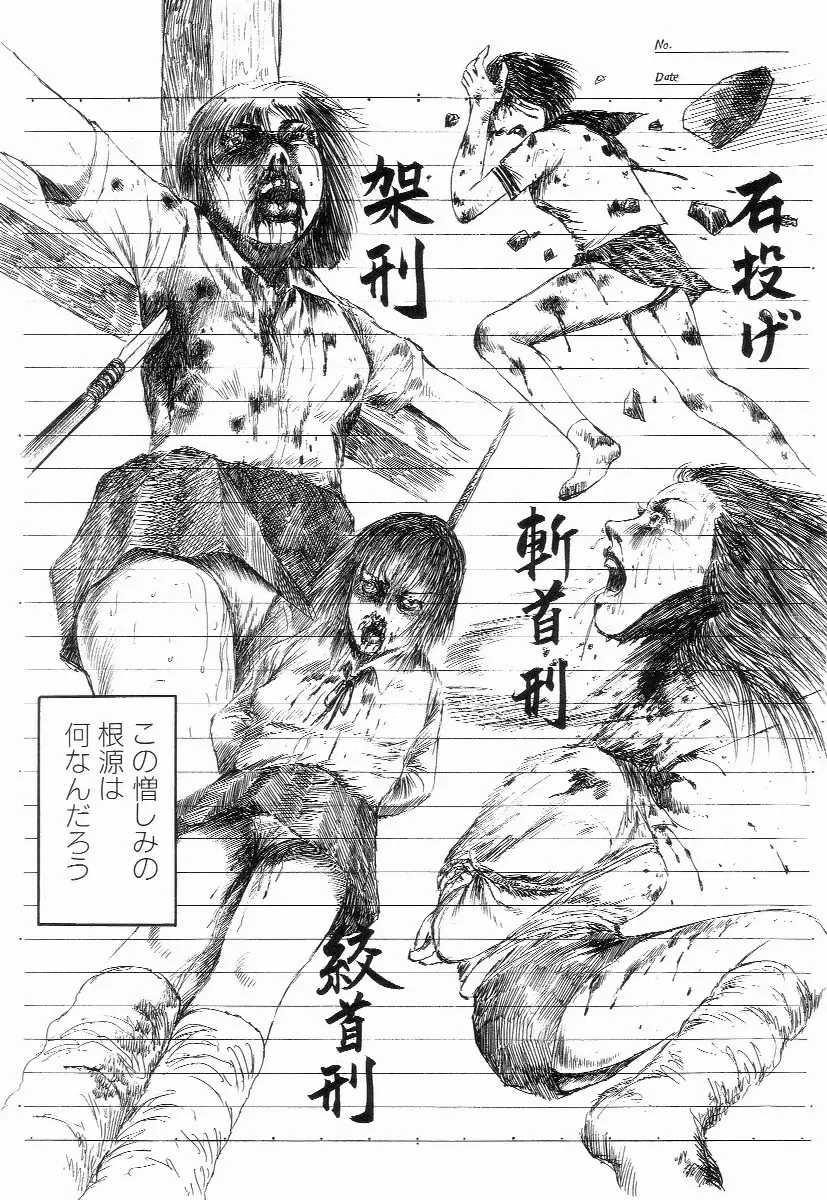 No.
Date
石投げ
架刑
斬首刑
絞首刑
この憎しみの
根源は
何なんだろう